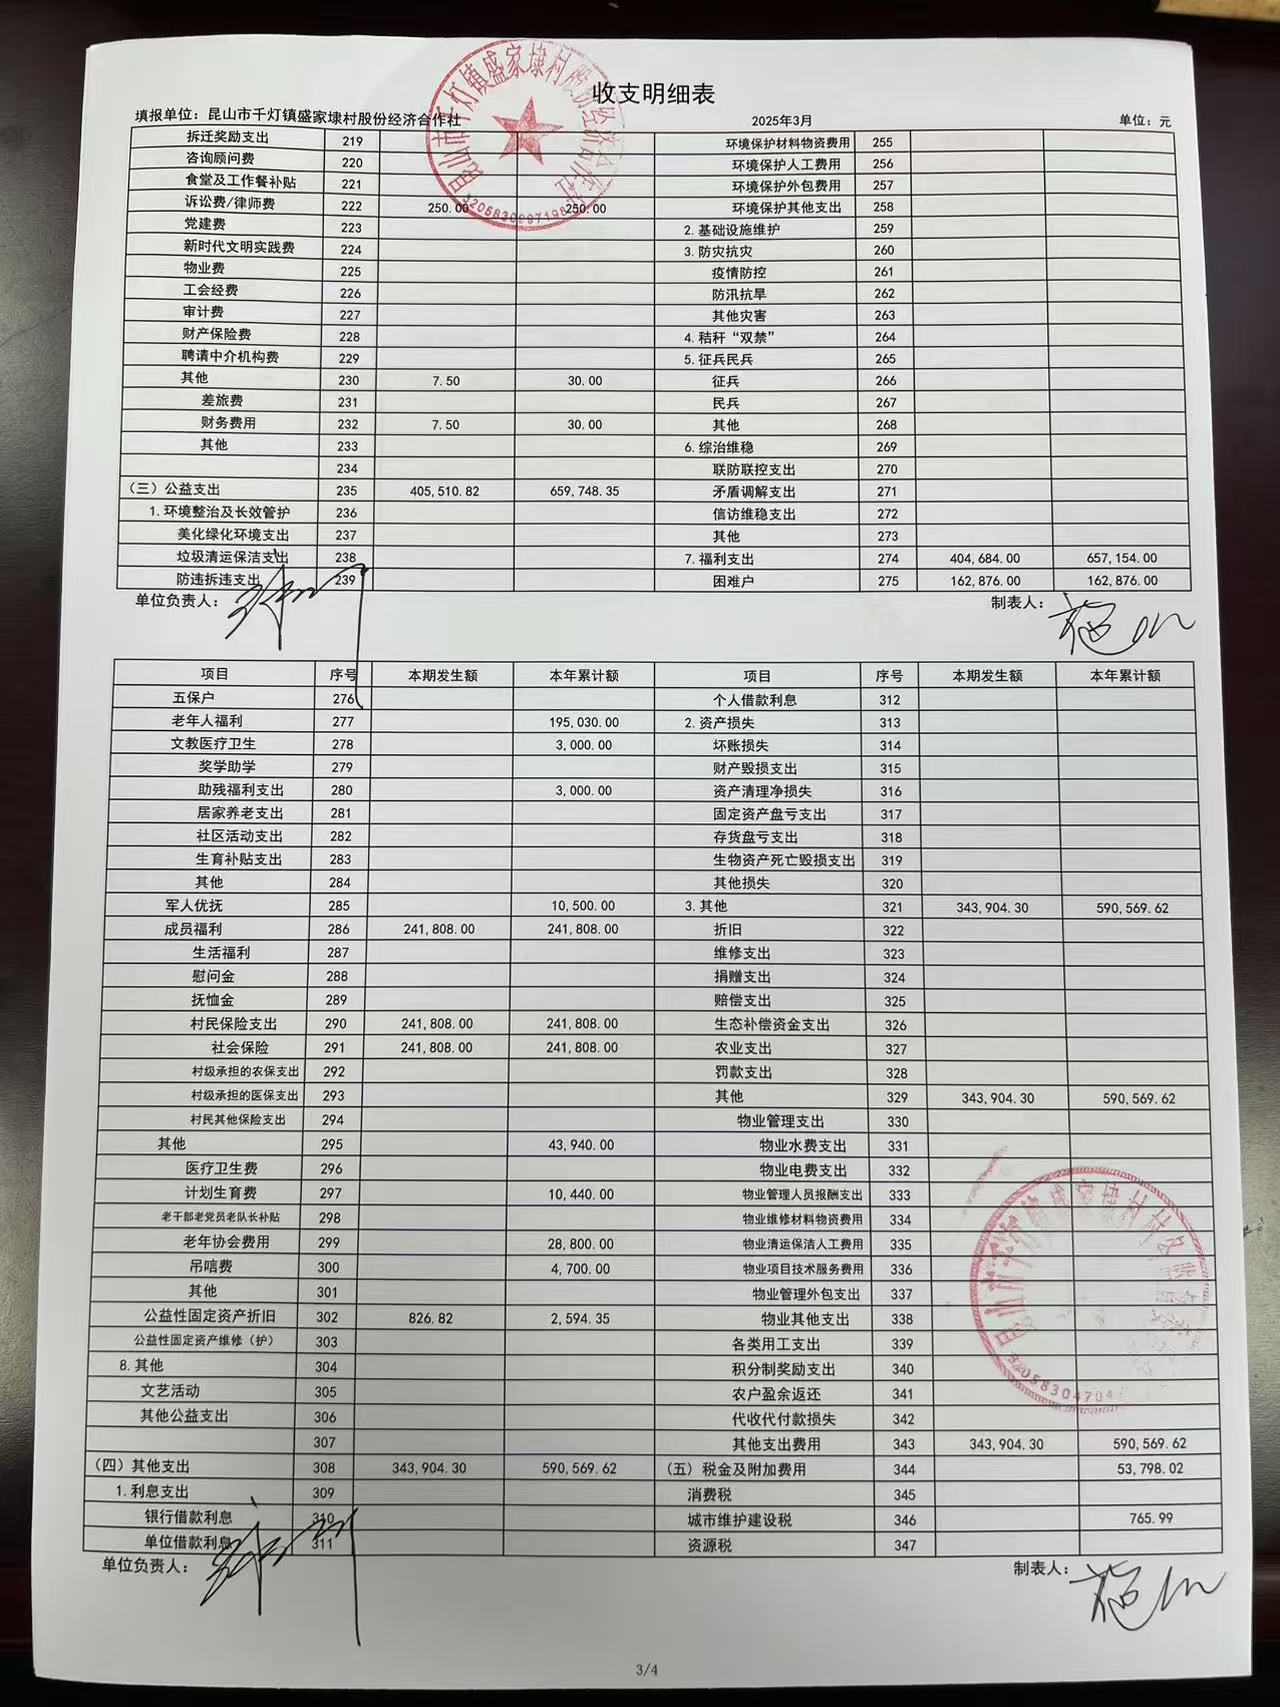 收支明细表
填报单位：昆山市千灯镇盛家埭村股份经济合作社 2025年3月 单位：元
拆迁奖励支出 219 环境保护材料物资费用 255
咨询顾问费 220 环境保护人工费用 256
食堂及工作餐补贴 221 环境保护外包费用 257
诉讼费/律师费 222 250.00 250.00 环境保护其他支出 258
党建费 223 2.基础设施维护 259
新时代文明实践费 224 3.防灾抗灾 260
物业费 225 疫情防控 261
工会经费 226 防汛抗旱 262
审计费 227 其他灾害 263
财产保险费 228 4.秸秆“双禁” 264
聘请中介机构费 229 5.征兵民兵 265
其他 230 7.50 30.00 征兵 266
差旅费 231 民兵 267
财务费用 232 7.50 30.00 其他 268
其他 233 6.综治维稳 269
234 联防联控支出 270
（三）公益支出 235 405,510.82 659,748.35 矛盾调解支出 271
1.环境整治及长效管护 236 信访维稳支出 272
美化绿化环境支出 237 其他 273
垃圾清运保洁支出 238 7.福利支出 274 404,684.00 657,154.00
防违拆违支出 239 困难户 275 162,876.00 162,876.00
单位负责人： 制表人：
项目 序号 本期发生额 本年累计额 项目 序号 本期发生额 本年累计额
五保户 276 个人借款利息 312
老年人福利 277 195,030.00 2.资产损失 313
文教医疗卫生 278 3,000.00 坏账损失 314
奖学助学 279 财产毁损支出 315
助残福利支出 280 3,000.00 资产清理净损失 316
居家养老支出 281 固定资产盘亏支出 317
社区活动支出 282 存货盘亏支出 318
生育补贴支出 283 生物资产死亡毁损支出 319
其他 284 其他损失 320
军人优抚 285 10,500.00 3.其他 321 343,904.30 590,569.62
成员福利 286 241,808.00 241,808.00 折旧 322
生活福利 287 维修支出 323
慰问金 288 捐赠支出 324
抚恤金 289 赔偿支出 325
村民保险支出 290 241,808.00 241,808.00 生态补偿资金支出 326
社会保险 291 241,808.00 241,808.00 农业支出 327
村级承担的农保支出 292 罚款支出 328
村级承担的医保支出 293 其他 329 343,904.30 590,569.62
村民其他保险支出 294 物业管理支出 330
其他 295 43,940.00 物业水费支出 331
医疗卫生费 296 物业电费支出 332
计划生育费 297 10,440.00 物业管理人员报酬支出 333
老干部老党员老队长补贴 298 物业维修材料物资费用 334
老年协会费用 299 28,800.00 物业清运保洁人工费用 335
吊唁费 300 4,700.00 物业项目技术服务费用 336
其他 301 物业管理外包支出 337
公益性固定资产折旧 302 826.82 2,594.35 物业其他支出 338
公益性固定资产维修（护） 303 各类用工支出 339
8.其他 304 积分制奖励支出 340
文艺活动 305 农户盈余返还 341
其他公益支出 306 代收代付款损失 342
307 其他支出费用 343 343,904.30 590,569.62
（四）其他支出 308 343,904.30 590,569.62 （五）税金及附加费用 344 53,798.02
1.利息支出 309 消费税 345
银行借款利息 310 城市维护建设税 346 765.99
单位借款利息 311 资源税 347
单位负责人： 制表人：
3/4